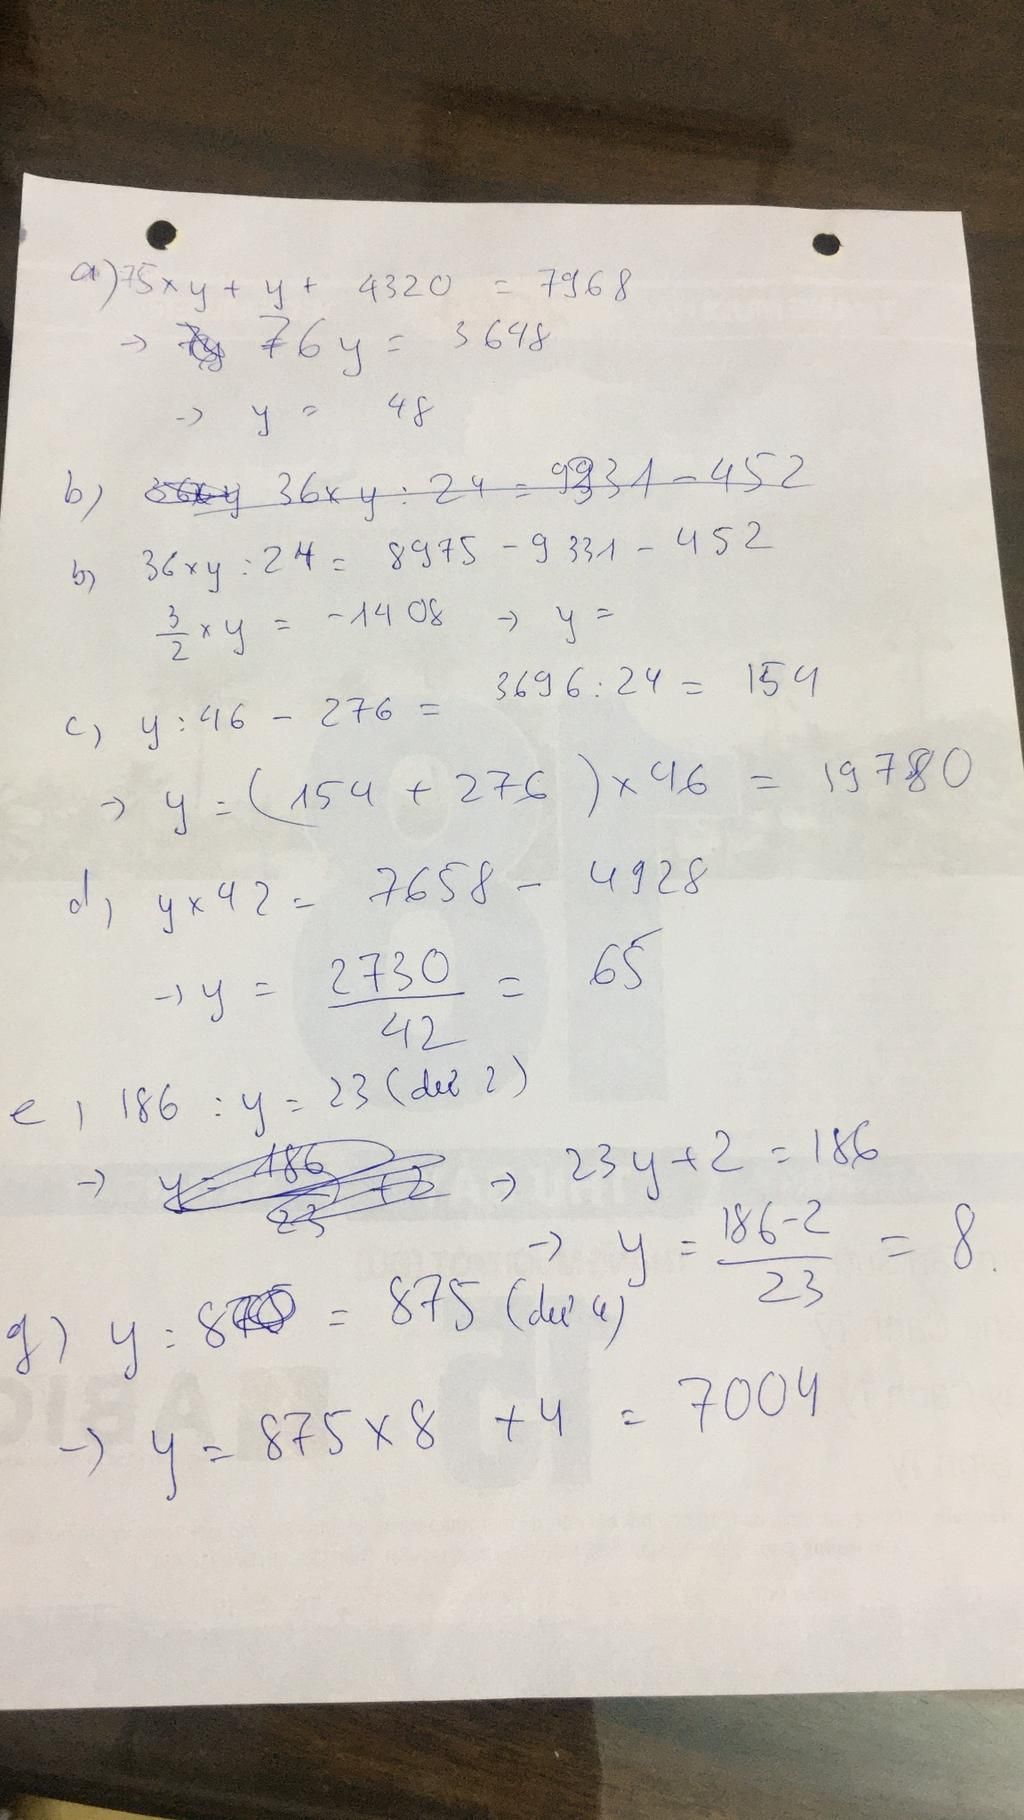 a) 75 x y + y + 4320 = 7968
→ 76 y = 3648
→ y = 48
b) 36 x y : 24 = 9331 - 452
b) 36 x y : 24 = 8975 - 9331 - 452
3/2 x y = -1408 → y =
c) y : 46 - 276 = 3696 : 24 = 154
→ y = (154 + 276) x 46 = 19780
d) y x 42 = 7658 - 4928
→ y = 2730/42 = 65
e) 186 : y = 23 (dư 2)
→ y = 186/23 + 2 → 23y + 2 = 186
→ y = 186-2/23 = 8.
g) y : 8 = 875 (dư 4)
→ y = 875 x 8 + 4 = 7004